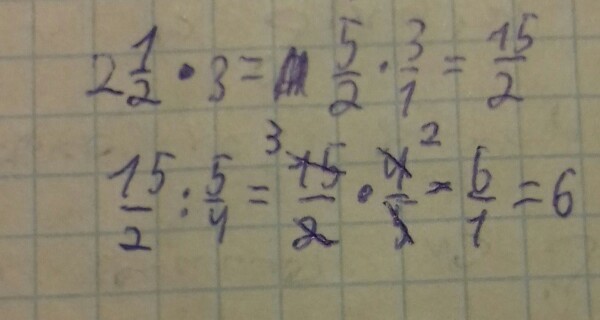 2 1/2 · 3 = 5/2 · 3/1 = 15/2
15/2 : 5/4 = 3 15/2 · 4/5 2 = 6/1 = 6